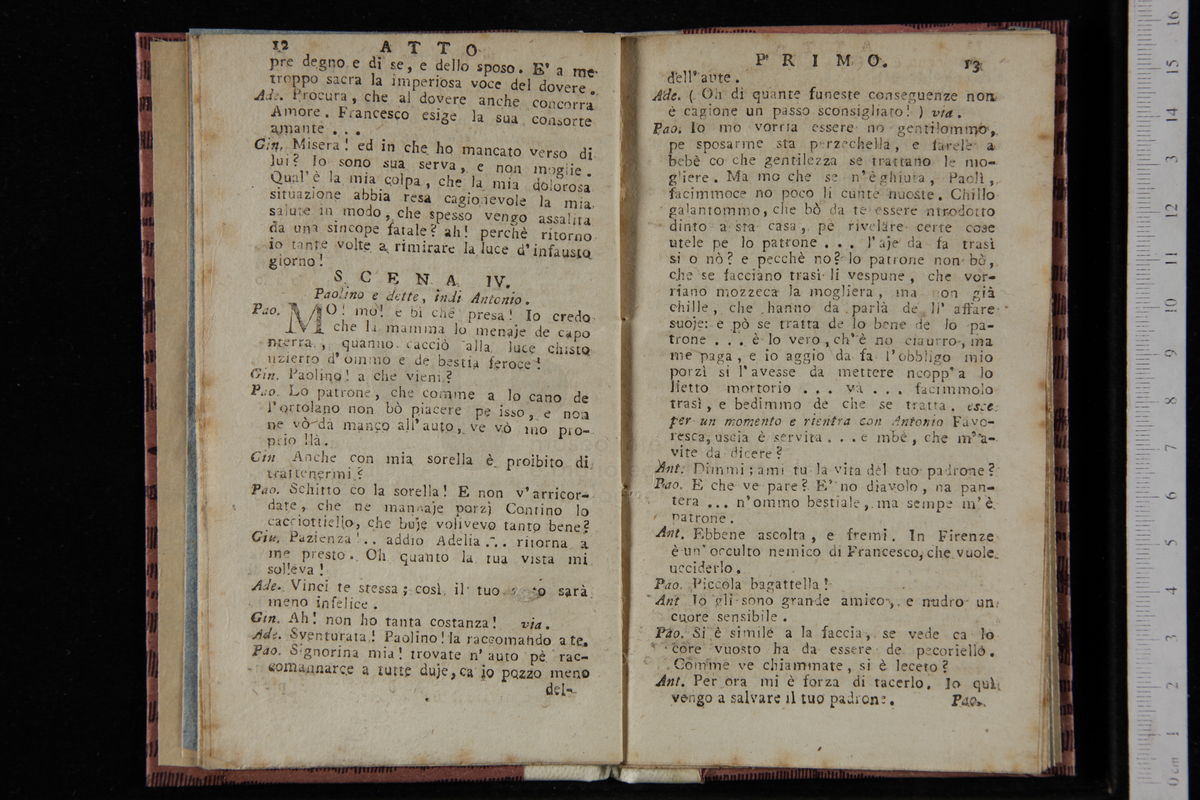 12 ATTO
pre degno e di se, e dello sposo. E' a me
troppo sacra la imperiosa voce del dovere.
Ade. Procura, che al dovere anche concorra
Amore. Francesco esige la sua consorte
amante . . .
Gin. Misera! ed in che ho mancato verso di
lui? Io sono sua serva, e non moglie.
Qual'è la mia colpa, che la mia dolorosa
situazione abbia resa cagionevole la mia
salute in modo, che spesso vengo assalita
da una sincope fatale? ah! perchè ritorno
io tante volte a rimirare la luce d'infausto
giorno!
SCENA IV.
Paolino e dette, indi Antonio.
Pao. MO! mo! e bì che presa! Io credo
che la mamma lo menaje de capo
nterra, quanno cacciò alla luce chisto
nzierto d'ommo e de bestia feroce!
Gin. Paolino! a che vieni?
Pao. Lo patrone, che comme a lo cano de
l'ortolano non bò piacere pe isso, e non
ne vò da manco all'auto, ve vò mo pro-
prio llà.
Gin. Anche con mia sorella è proibito di
trattenermi?
Pao. Schitto co la sorella! E non v'arricor-
date, che ne mannaje porzì Contino lo
cacciottiello, che buje volivevo tanto bene?
Gin. Pazienza!.. addio Adelia... ritorna a
me presto. Oh quanto la tua vista mi
solleva!
Ade. Vinci te stessa; così il tuo sarà
meno infelice.
Gin. Ah! non ho tanta costanza! via.
Ade. Sventurata! Paolino! la raccomando a te.
Pao. Signorina mia! trovate n'auto pè rac-
comannarce a tutte duje, ca io pozzo meno
del-
PRIMO. 13
dell'aute.
Ade. ( Oh di quante funeste conseguenze non
è cagione un passo sconsigliato! ) via.
Pao. Io mo vorria essere no gentilommo,
pe sposarme sta perzechella, e farele a
bebè co che gentilezza se trattano le mo-
gliere. Ma mo che se n'è ghiuta, Paolì,
facimmoce no poco li cunte nuoste. Chillo
galantommo, che bò da te essere ntrodotto
dinto a sta casa, pe rivelare certe cose
utele pe lo patrone . . . l'aje da fa trasì
si o nò? e pecchè no? lo patrone non bò,
che se facciano trasì li vespune, che vor-
riano mozzecà la mogliera, ma non già
chille, che hanno da parlà de li' affare
suoje: e pò se tratta de lo bene de lo pa-
trone . . . è lo vero, ch'è no ciaurro, ma
me paga, e io aggio da fa l'obbligo mio
porzì si l'avesse da mettere ncopp'a lo
lietto mortorio . . . va . . . facimmolo
trasì, e bedimmo de che se tratta. esce
per un momento e rientra con Antonio Favo-
resca, uscia è servita . . . e mbè, che m'a-
vite da dicere?
Ant. Dimmi: ami tu la vita del tuo padrone?
Pao. E che ve pare? E' no diavolo, na pan-
tera ... n'ommo bestiale, ma sempe m'è
patrone.
Ant. Ebbene ascolta, e fremi. In Firenze
è un'occulto nemico di Francesco, che vuole
ucciderlo.
Pao. Piccola bagattella!
Ant Io gli sono grande amico, e nudro un
cuore sensibile.
Pao. Si è simile a la faccia, se vede ca lo
core vuosto ha da essere de pecoriello.
Comme ve chiammate, si è leceto?
Ant. Per ora mi è forza di tacerlo. Io quì
vengo a salvare il tuo padrone. Pao.
0 cm 1 2 3 4 5 6 7 8 9 10 11 12 13 14 15 16